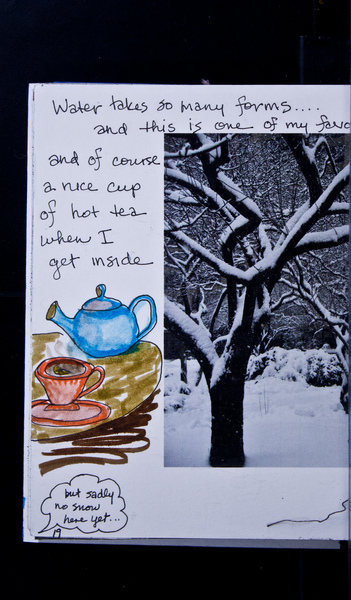 Water takes so many forms....
and this is one of my favo
and of course
a nice cup
of hot tea
when I
get inside
but sadly
no snow
here yet...
19